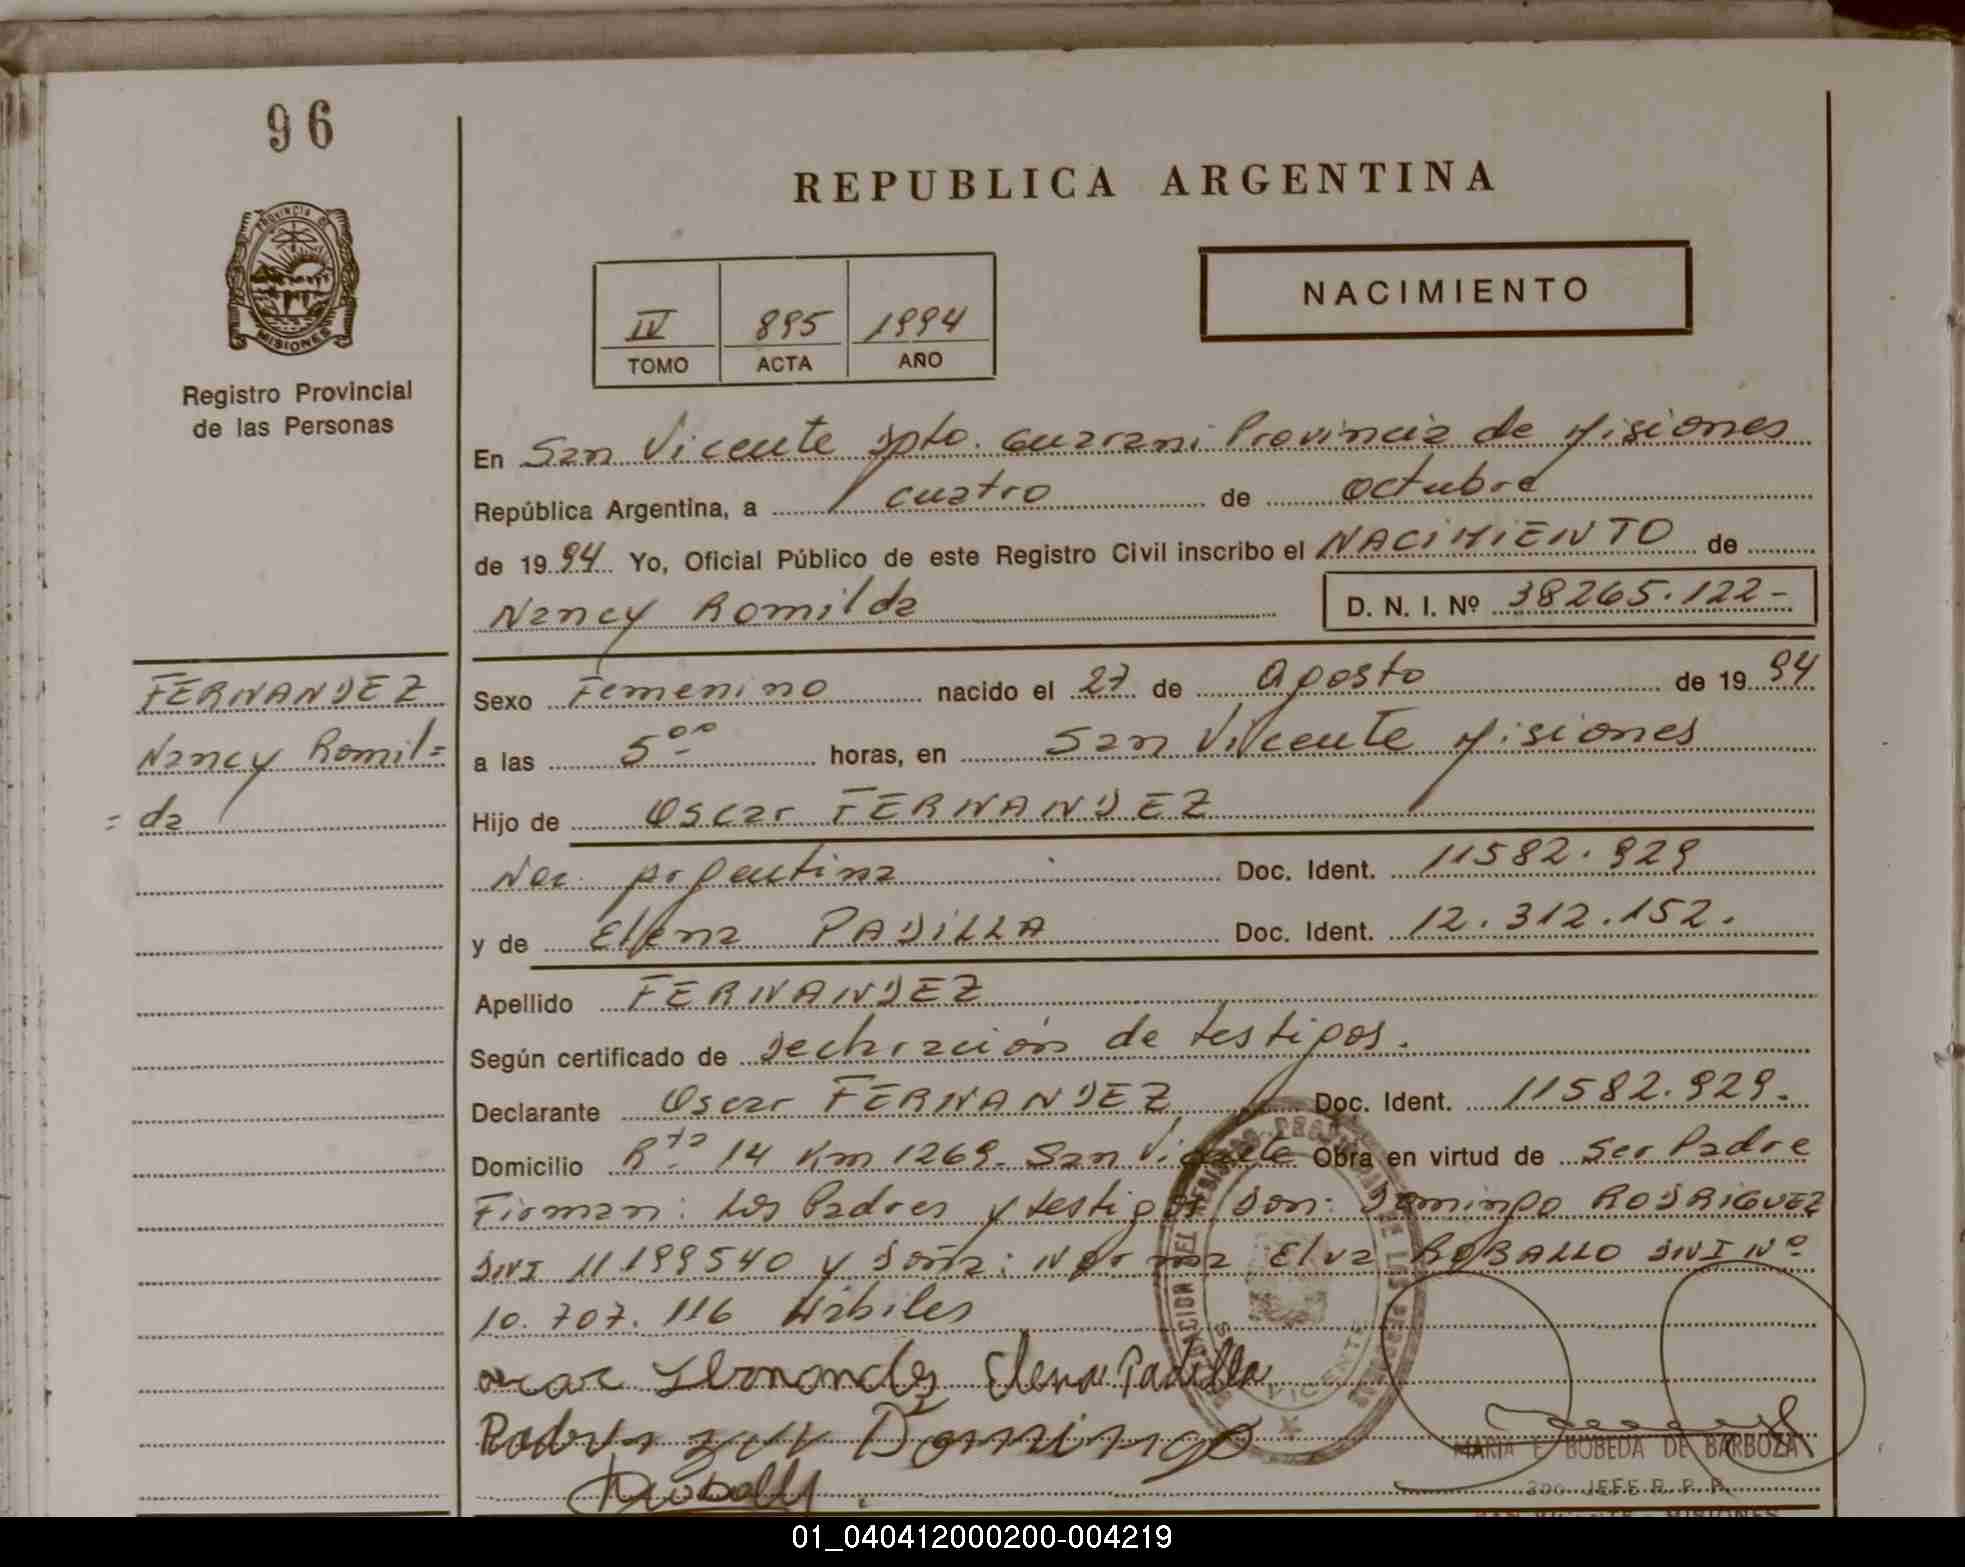 96
REPUBLICA ARGENTINA
PROVINCIA DE
MISIONES
Registro Provincial
de las Personas
IV 895 1994
TOMO ACTA AÑO
NACIMIENTO
En San Vicente Dpto. Guarani Provincia de Misiones
República Argentina, a cuatro de octubre
de 1994 Yo, Oficial Público de este Registro Civil inscribo el NACIMIENTO de
Nancy Romilda D. N. I. Nº 38265.122-
FERNANDEZ
Nancy Romil=
= da
Sexo Femenino nacido el 27 de Agosto de 1994
a las 5ºº horas, en San Vicente Misiones
Hijo de Oscar FERNANDEZ
Nac. Argentina Doc. Ident. 11582.929
y de Elena PADILLA Doc. Ident. 12.312.152.
Apellido FERNANDEZ
Según certificado de Declaración de testigos.
Declarante Oscar FERNANDEZ Doc. Ident. 11582.929.
Domicilio Rta 14 Km 1269. San Vicente Obra en virtud de Ser Padre
Firman: Los Padres y testigos Don: Domingo RODRIGUEZ
DNI 11199540 y Doña: Norma Elva ROBALLO DNI Nº
10.707.116 Hábiles
oscar Fernandez Elena Padilla
Rodriguez Domingo
MARIA E. BOBEDA DE BARBOZA
JEFE R. P. P.
SAN VICENTE - MISIONES
01_040412000200-004219